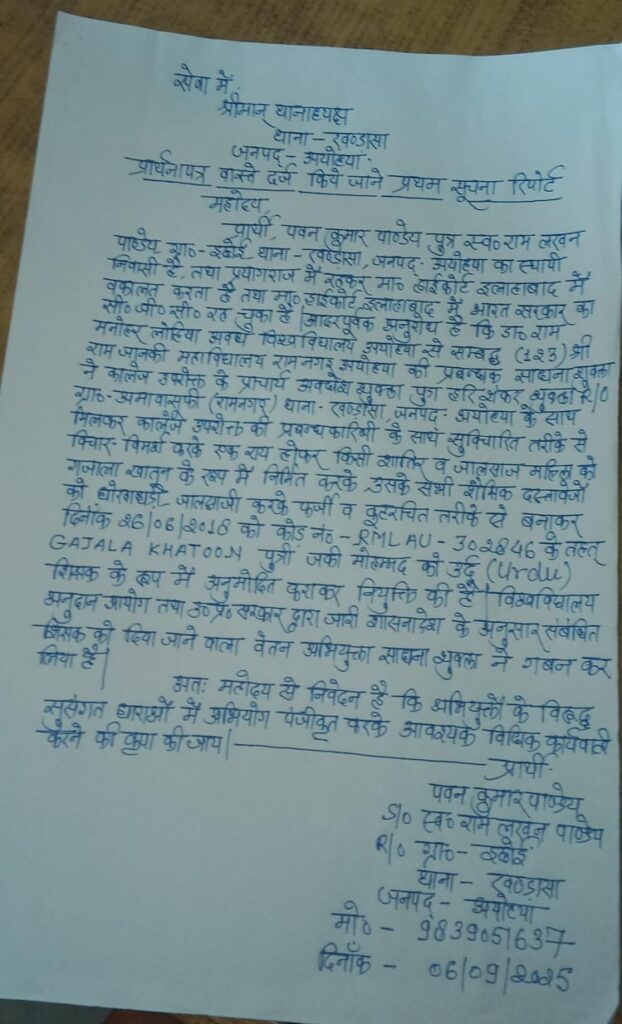 सेवा में,
श्रीमान् थानाध्यक्ष
थाना - खण्डासा
जनपद - अयोध्या.
प्रार्थनापत्र वास्ते दर्ज किये जाने प्रथम सूचना रिपोर्ट
महोदय,
प्रार्थी, पवन कुमार पाण्डेय पुत्र स्व० राम लखन
पाण्डेय ग्रा०- इछोई थाना - खण्डासा, जनपद- अयोध्या का स्थायी
निवासी है, तथा प्रयागराज में रहकर मा० हाईकोर्ट इलाहाबाद में
वकालत करता है तथा मा० हाईकोर्ट इलाहाबाद में भारत सरकार का
सी० जी० सी० रह चुका है। आदरपूर्वक अनुरोध है कि डा० राम
मनोहर लोहिया अवध विश्वविद्यालय अयोध्या से सम्बद्ध (123) श्री
राम जानकी महाविद्यालय रामनगर अयोध्या की प्रबन्धक साधना शुक्ला
ने कालेज उपरोक्त के प्राचार्य अवधेश शुक्ला पुत्र हरिशंकर शुक्ला R/O
ग्रा०- अमावासूफी (रामनगर) थाना - खण्डासा, जनपद- अयोध्या के साथ
मिलकर कालेज उपरोक्त की प्रबन्धकारिणी के साथ सुविचारित तरीके से
विचार- विमर्श करके एक राय होकर किसी शातिर व जालसाज महिला को
गजाला खातून के रूप में निर्मित करके उसके सभी शैक्षिक दस्तावेजों
को धोखाधड़ी जालसाजी करके फर्जी व कूटरचित तरीके से बनाकर
दिनांक 26/06/2018 को कोड नं० - RMLAU - 302846 के तहत
GAJALA KHATOON पुत्री जकी मोहम्मद को उर्दू (Urdu)
शिक्षक के रूप में अनुमोदित कराकर नियुक्ति की है। विश्वविद्यालय
अनुदान आयोग तथा उ० प्र० सरकार द्वारा जारी शासनादेश के अनुसार संबंधित
शिक्षक को दिया जाने वाला वेतन अभियुक्ता साधना शुक्ला ने गबन कर
लिया है।
अतः महोदय से निवेदन है कि अभियुक्तों के विरूद्ध
सुसंगत धाराओं में अभियोग पंजीकृत करके आवश्यक विधिक कार्यवाही
करने की कृपा की जाय।
प्रार्थी-
पवन कुमार पाण्डेय
S/० स्व० राम लखन पाण्डेय
R/० ग्रा० - इछोई
थाना - खण्डासा
जनपद् - अयोध्या
मो० - 9839051637
दिनाँक - 06/09/2025